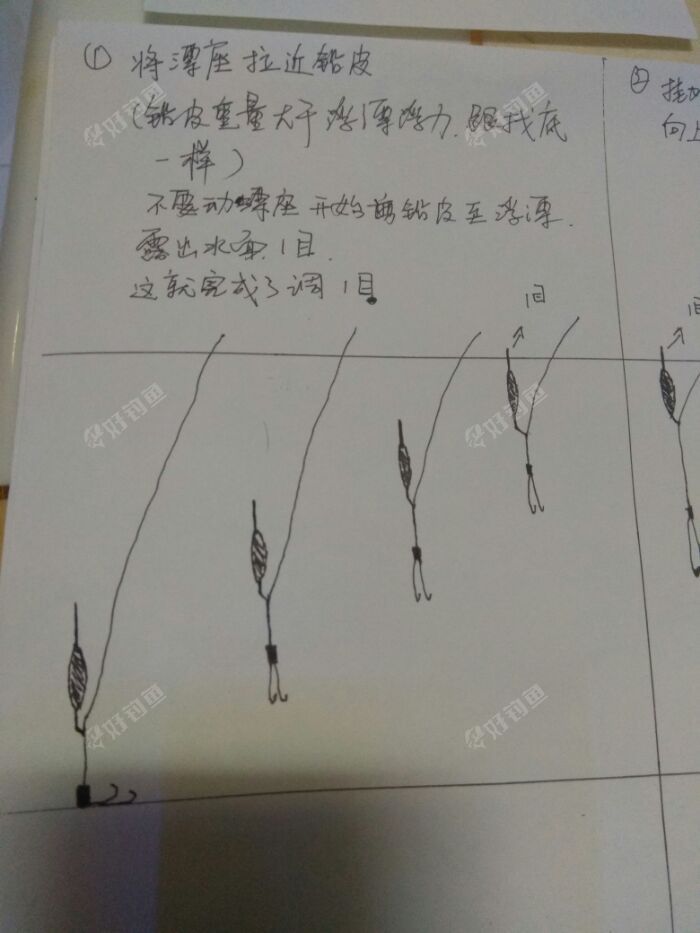 ① 将漂座拉近铅皮
(铅皮重量大于浮漂浮力.跟找底
一样)
不要动漂座开始剪铅皮至浮漂.
露出水面1目.
这就完成了调1目.
1目
② 挂
向上
1目
好钓鱼
好钓鱼
好钓鱼
好钓鱼
好钓鱼
好钓鱼